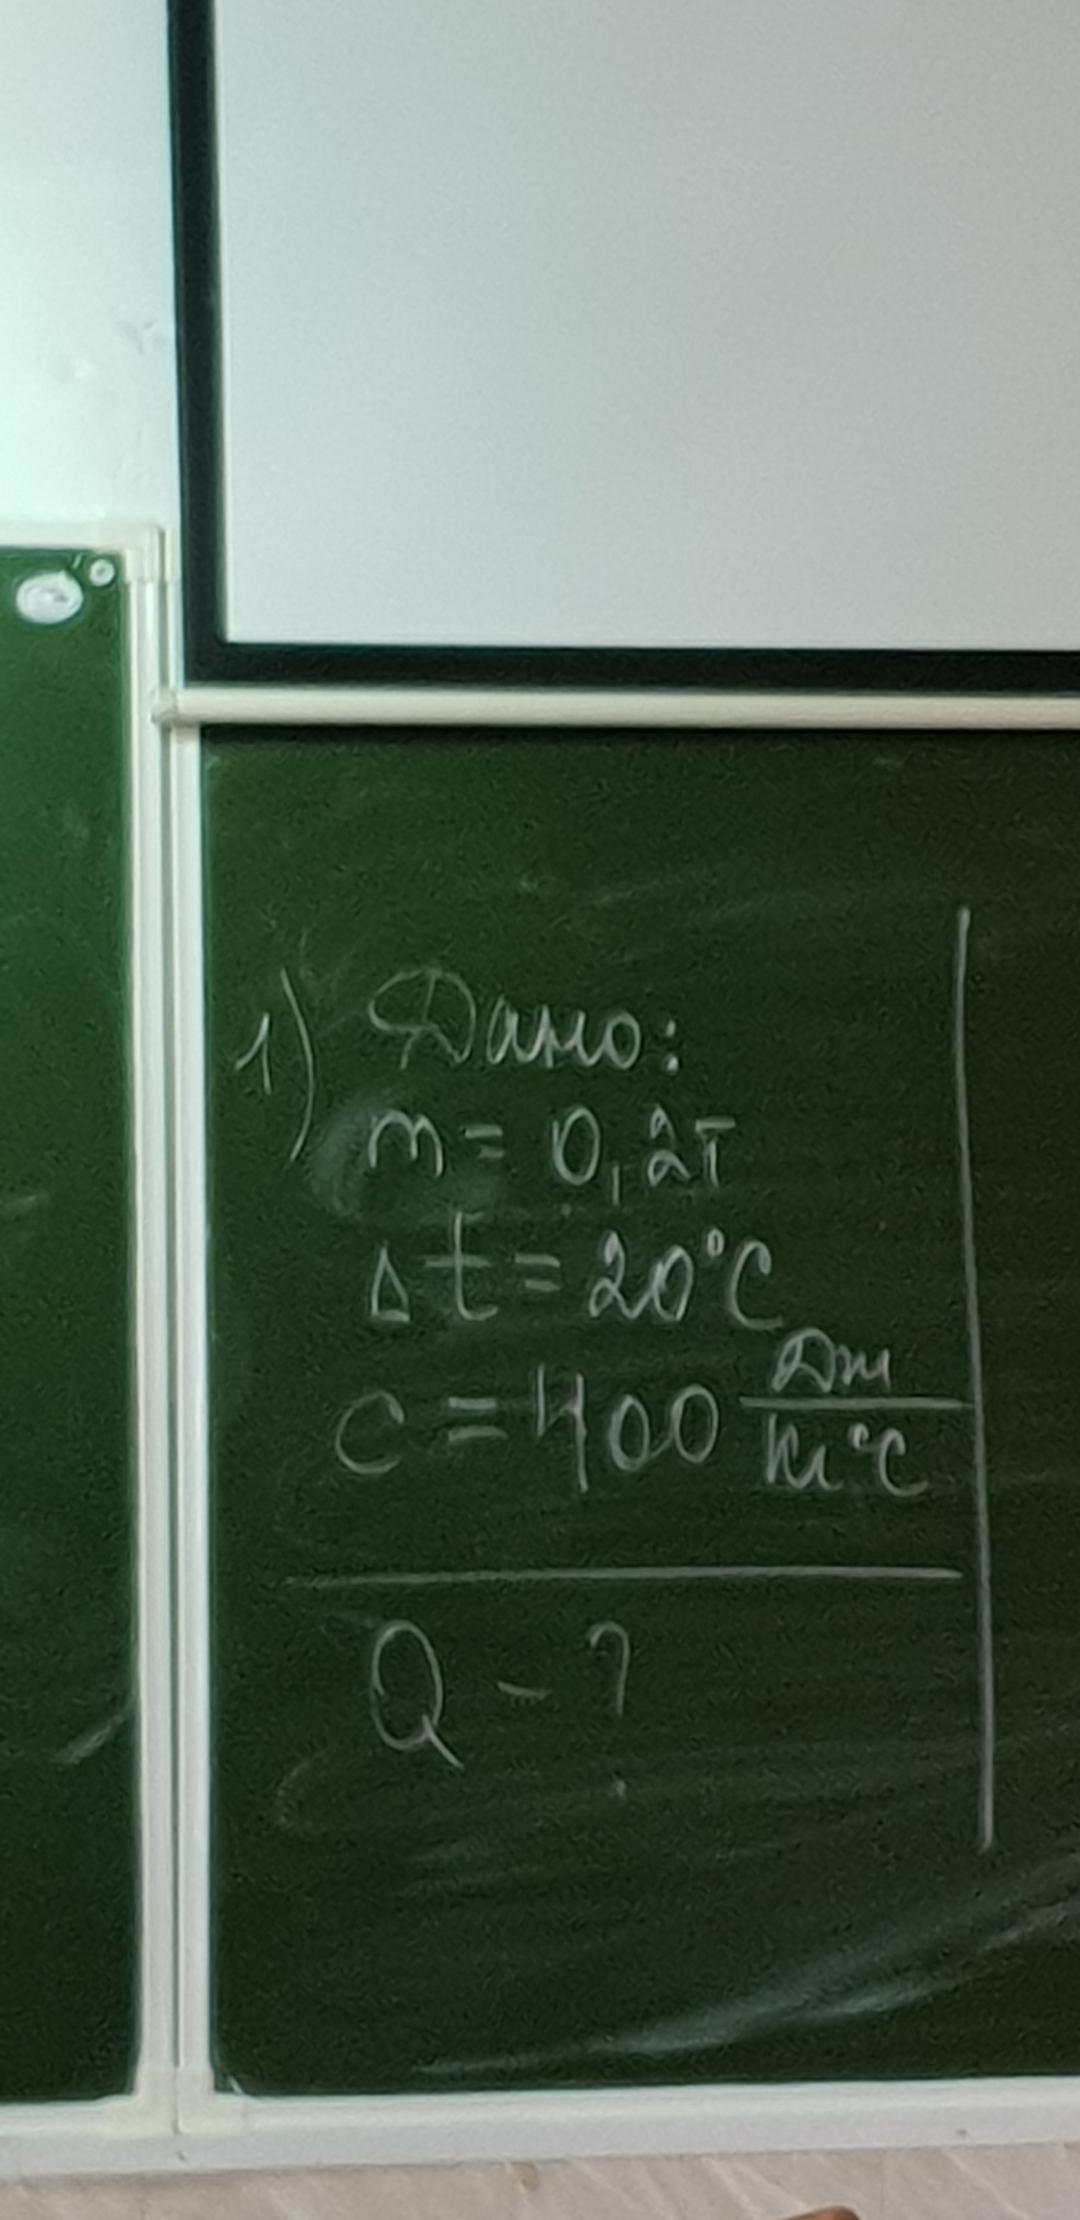 1) Дано:
m = 0,2т
Δt = 20°C
c = 400 Дж/кг°C
Q - ?